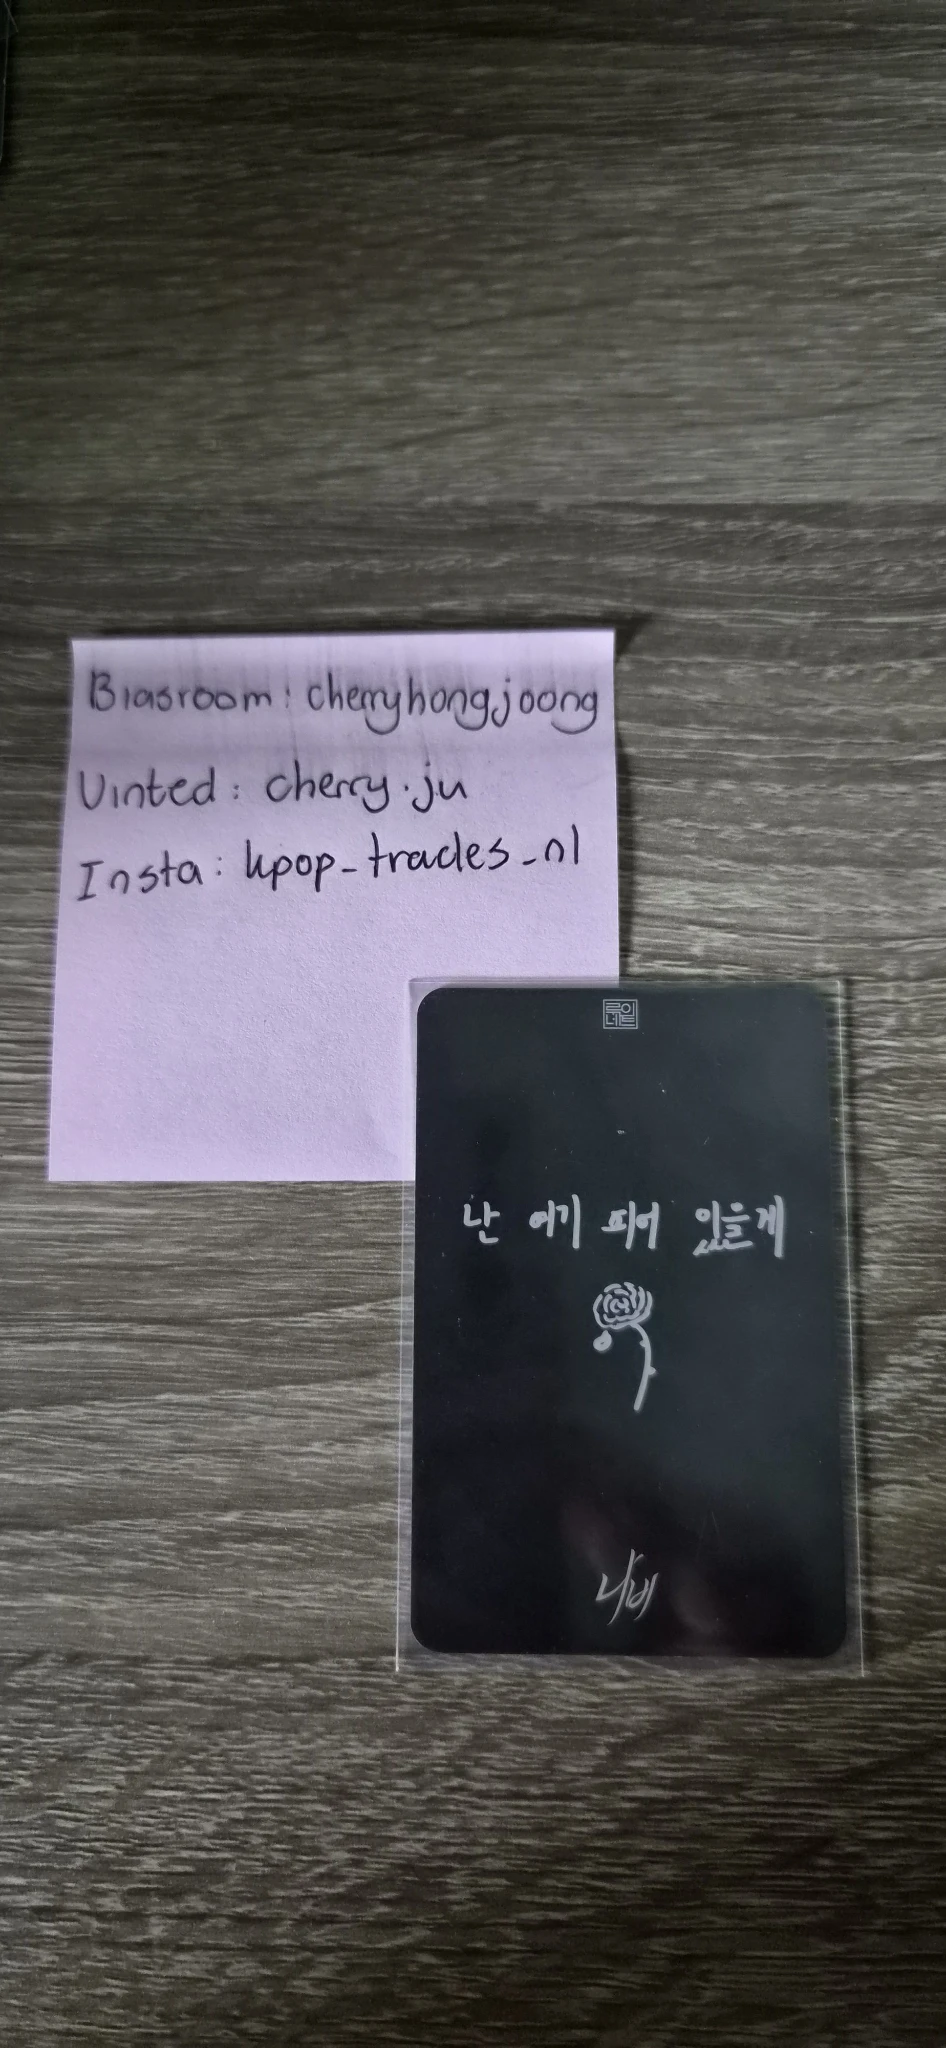 Biasroom: cherryhongjoong
Vinted: cherry.ju
Insta: kpop_trades_nl
루이
네트
난 여기 피어 있을게
나비